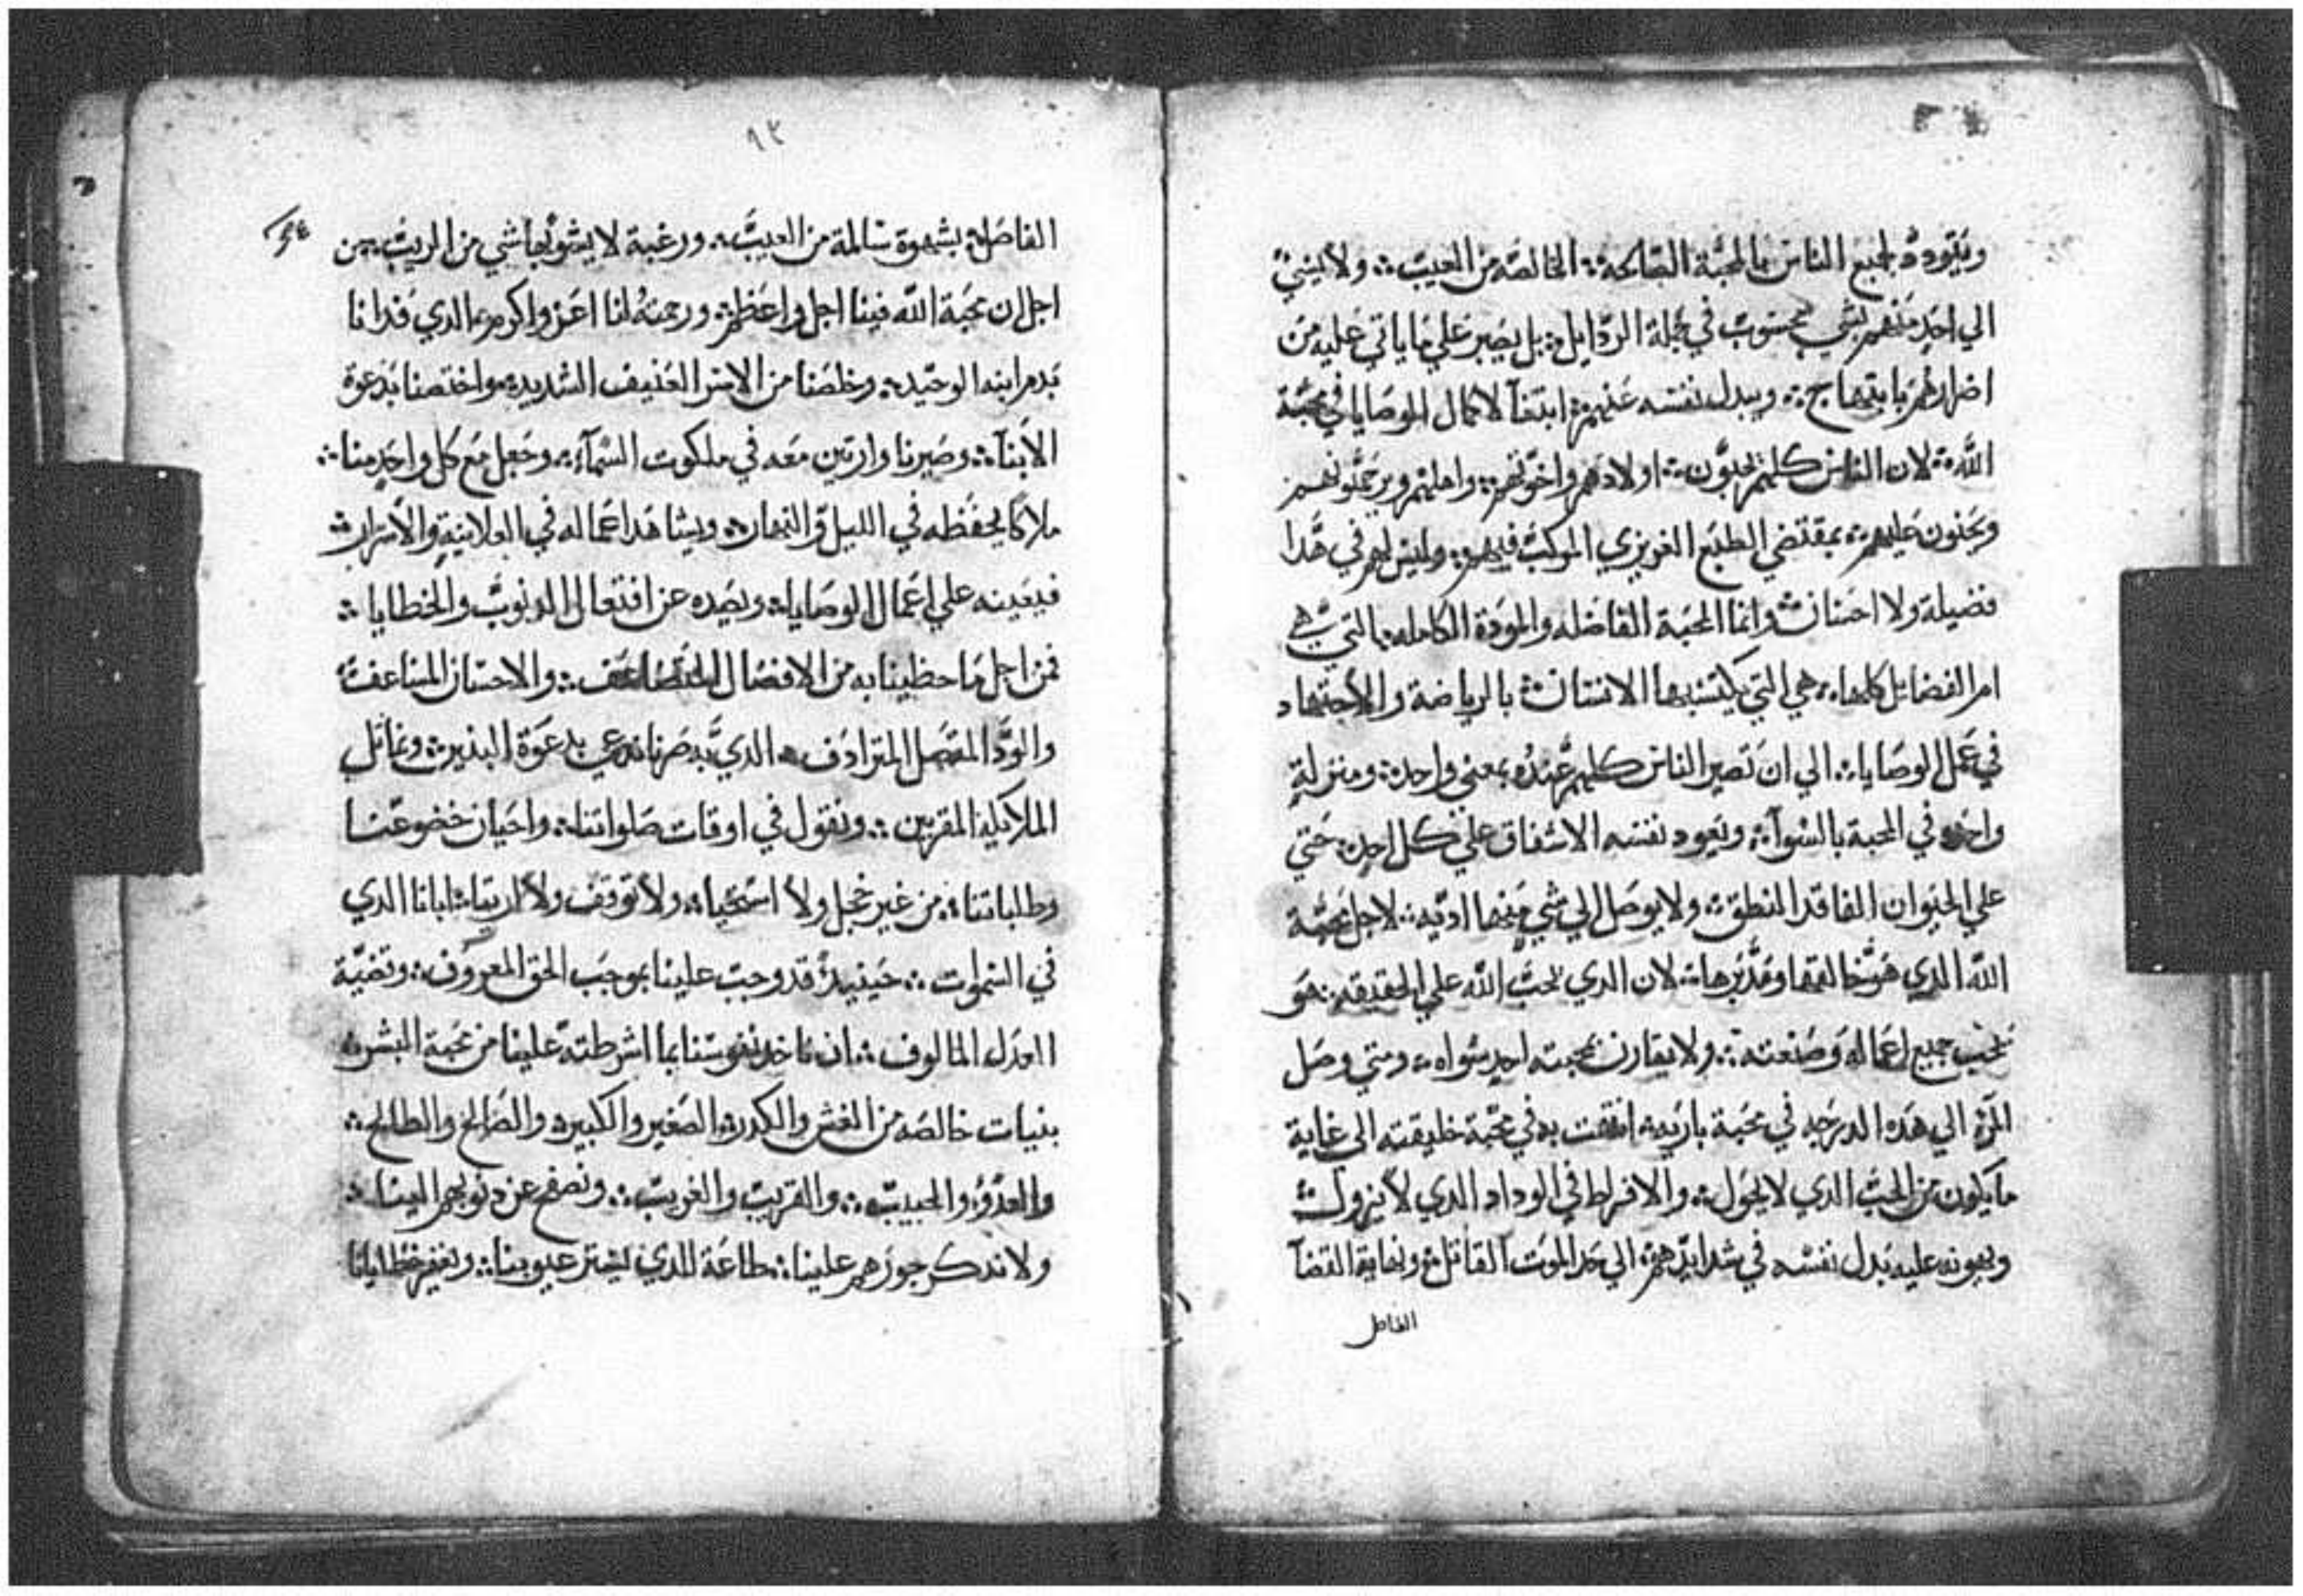 ويتودد لجميع الناس بالمحبة الصالحة؛ الخالصه من العيب؛ ولا يسي
الي احد منهم بشي محسوب في جملة الردايل؛ بل يصبر علي ما ياتي عليه من
اضرارهم بابتهاج؛ ويبدل نفسه عنهم؛ ابتغآ لاكمال الوصايا في محبة
الله؛ لان الناس كلهم يحبون؛ اولادهم واخوتهم؛ واهلهم ويرحمونهم
ويحنون عليهم؛ بمقتضي الطبع الغريزي المركب فيهم؛ وليس لهم في هدا
فضيلة ولا احسان؛ وانما المحبة الفاضله والمودة الكامله؛ التي هي
ام الفضايل كلها؛ هي التي يكتسبها الانسان؛ بالرياضة والاجتهاد
في عمل الوصايا؛ الي ان تصير الناس كلهم عنده بمعني واحد؛ ومنزلة
واحده في المحبة بالسوآ؛ ويعود نفسه الاشفاق علي كل احد؛ حتي
علي الحيوان الفاقد المنطق؛ ولا يوصل الي شي منها اديه؛ لاجل محبة
الله الدي هو خالقها ومدبرها؛ لان الدي يحب الله علي الحقيقه؛ هو
يحب جميع اعماله وصنعته؛ ولا يقارن بمحبته احد سواه؛ ومتي وصل
المرء الي هده الدرجه في محبة باريه؛ اتفقت به في محبة خليقته الى غاية
ما يكون من الحب الدي لا يحول؛ والافراط في الوداد الدي لا يزول؛
ويهون عليه بدل نفسه في شدايدهم؛ الي حد الموت القاتل؛ ونهاية القضآ
الفاصل
٩٢
الفاصل؛ بشهوة سالمة من العيب؛ ورغبة لا يشوبها شي من الريب؛ من
اجل ان محبة الله فينا اجل واعظم؛ ورحمته لنا اعز واكرم؛ الدي فدانا
بدم ابنه الوحيد؛ وخلصنا من الاسر العنيف الشديد؛ واختصنا بدعوة
الابنآ؛ وصيرنا وارتين معه في ملكوت السمآء؛ وجعل مع كل واحد منا؛
ملاكا يحفظه في الليل والنهار؛ ويشاهد اعماله في العلانية والاسرار؛
فيعينه علي اعمال الوصايا؛ ويصده عن افتعال الدنوب والخطايا؛
فمن اجل ما حظينا به من الافضال المتضاعف؛ والاحسان المساعف؛
والود المتصل المترادف؛ الدي به صرنا ندعي بدعوة البنين؛ ونماثل
الملايكة المقربين؛ ونقول في اوقات صلواتنا؛ واحيان خضوعنا
وطلباتنا؛ من غير خجل ولا استحيا؛ ولا توقف ولا ارتيا؛ ابانا الدي
في السموات؛ حينيد قد وجب علينا بموجب الحق المعروف؛ وقضية
العدل المالوف؛ ان ناخد نفوسنا بما اشرطته علينا من محبة البشر؛
بنيات خالصه من الغش والكدر؛ الصغير والكبير؛ والصالح والطالح؛
والعدو؛ والحبيب؛ والقريب والغريب؛ ونصفح عن دنوبهم الينا؛
ولا ندكر جورهم علينا؛ طاعة للدي يستر عيوبنا؛ ويغفر خطايانا